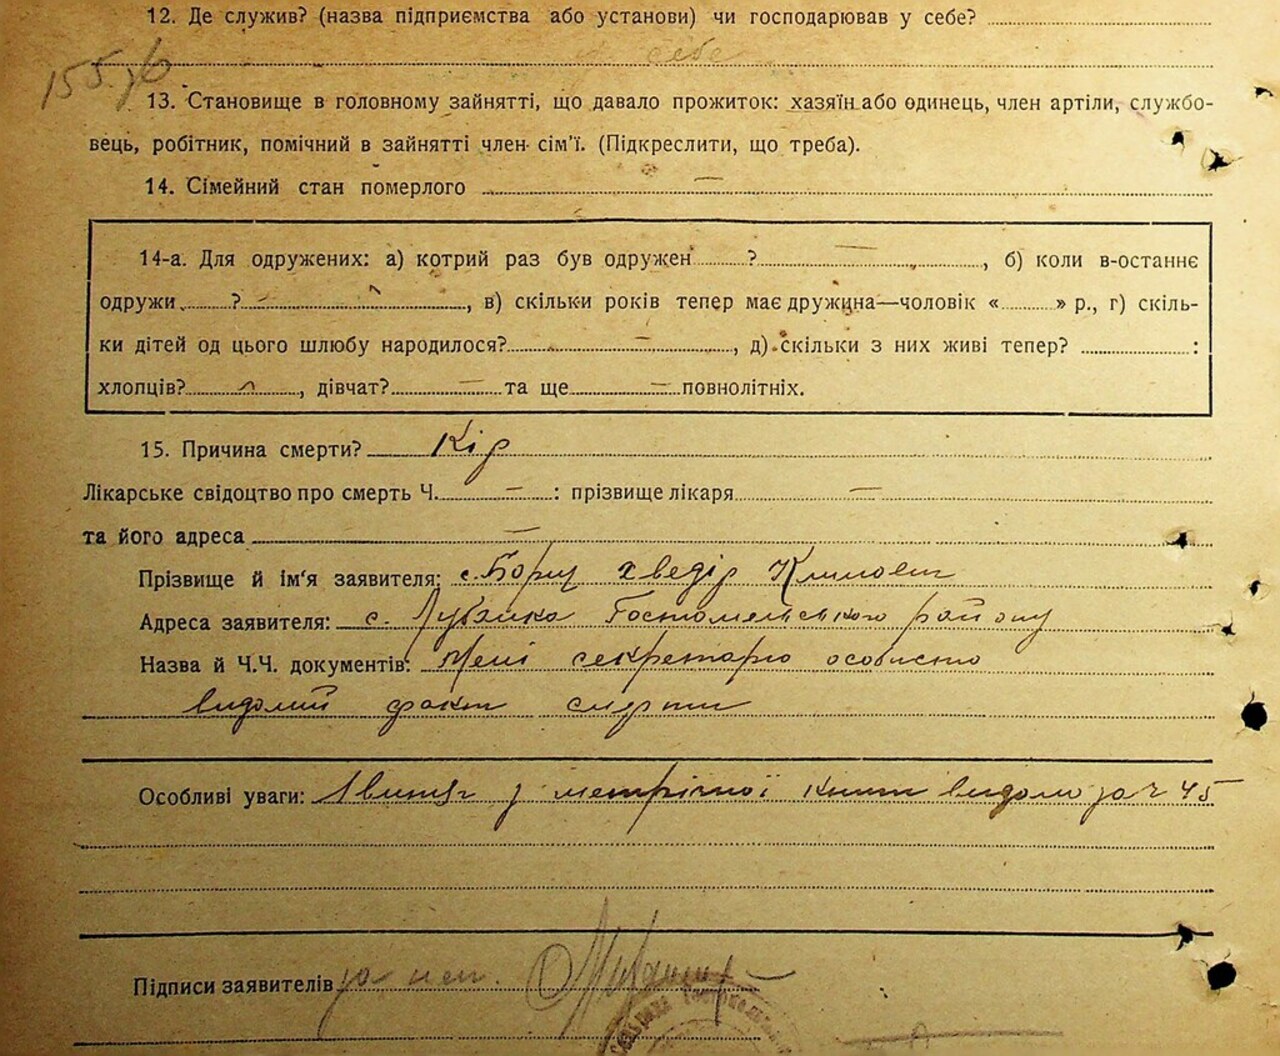 12. Де служив? (назва підприємства або установи) чи господарював у себе?
себе
155
13. Становище в головному зайнятті, що давало прожиток: хазяїн або одинець, член артіли, службо-
вець, робітник, помічний в зайнятті член сім'ї. (Підкреслити, що треба).
14. Сімейний стан померлого —
14-а. Для одружених: а) котрий раз був одружен ? —, б) коли в-останнє
одружи ? —, в) скільки років тепер має дружина—чоловік « » р., г) скіль-
ки дітей од цього шлюбу народилося? —, д) скільки з них живі тепер? :
хлопців? —, дівчат? — та ще — повнолітніх.
15. Причина смерти? Кір
Лікарське свідоцтво про смерть Ч. — : прізвище лікаря —
та його адреса —
Прізвище й ім'я заявителя: Хведір
Адреса заявителя: с. Гостомельського району
Назва й Ч.Ч. документів: Мені секретарю особисто
видомий факт смерти
Особливі уваги: з метрічної книги видомо за ч 45
Підписи заявителів за неп.